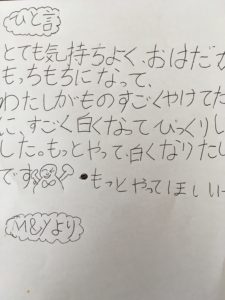 ひと言
とても気持ちよく、おはだが
もっちもちになって、
わたしがものすごくやけてた
に、すごく白くなってびっくりし
した。もっとやって、白くなりたい
です。 ●もっとやってほしいー
M&Yより